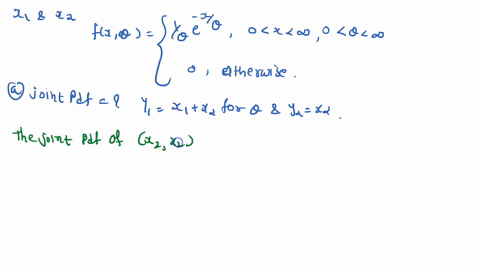 x1 & x2
f(x,θ) = { 1/θ e^{-x/θ}, 0<x<∞, 0<θ<∞
0, otherwise.
ⓐ joint Pdf = ? Y1 = x1+x2 for θ & Y2 = x2.
the joint Pdf of (x2, x2)